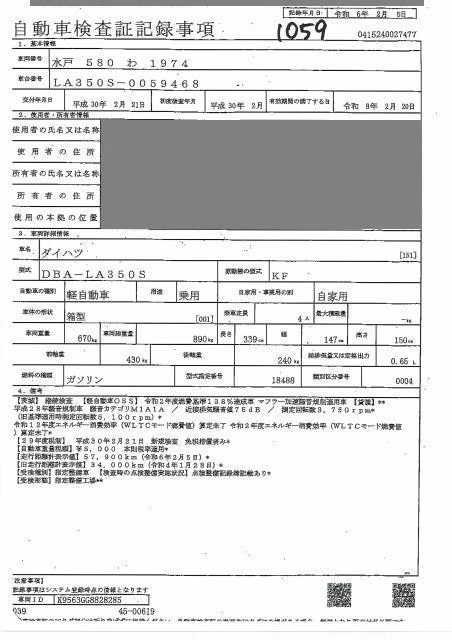 記録年月日 令和 6年 2月 5日
自動車検査証記録事項
1059
0415240027477
1．基本情報
車両番号 水戸 580 わ 1974
車台番号 LA350S-0059468
交付年月日 平成30年 2月 21日 初度検査年月 平成30年 2月 有効期間の満了する日 令和 8年 2月 20日
2．使用者・所有者情報
使用者の氏名又は名称
使用者の住所
所有者の氏名又は名称
所有者の住所
使用の本拠の位置
3．車両詳細情報
車名 ダイハツ [151]
型式 DBA-LA350S 原動機の型式 KF
自動車の種別 軽自動車 用途 乗用 自家用・事業用の別 自家用
車体の形状 箱型 [001] 乗車定員 4人 最大積載量 -kg
車両重量 670kg 車両総重量 890kg 長さ 339cm 幅 147cm 高さ 150cm
前軸重 430kg 後軸重 240kg 総排気量又は定格出力 0.65 L
燃料の種類 ガソリン 型式指定番号 18488 類別区分番号 0004
4．備考
【茨城】 継続検査 【軽自動車OSS】 令和2年度燃費基準138%達成車 マフラー加速騒音規制適用車 【貸渡】**
平成28年騒音規制車 騒音カテゴリM1A1A ／ 近接排気騒音値75dB ／ 測定回転数3,750rpm*
(旧基準適用時測定回転数5,100rpm)*
令和12年度エネルギー消費効率(WLTCモード燃費値)算定未了 令和2年度エネルギー消費効率(WLTCモード燃費値
)算定未了*
【29年度税制】 平成30年2月21日 新規検査 免税措置済み*
【自動車重量税額】 ¥5,000 本則税率適用*
【走行距離計表示値】 57,900km (令和6年2月5日)*
【旧走行距離計表示値】 34,000km (令和4年1月28日)*
【受検種別】指定整備車 【検査時の点検整備実施状況】点検整備記録簿記載あり*
【受検形態】指定整備工場**
[注意事項]
記録事項はシステム登録時点の情報となります
車両ID K9563GG8828285
039 45-00619